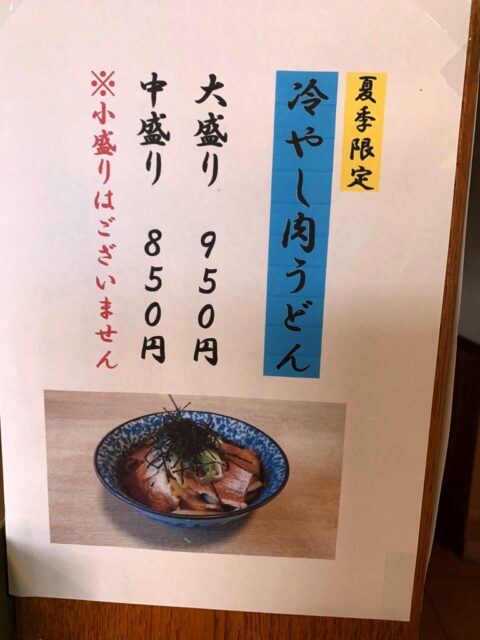 夏季限定
冷やし肉うどん
大盛り 950円
中盛り 850円
※小盛りはございません